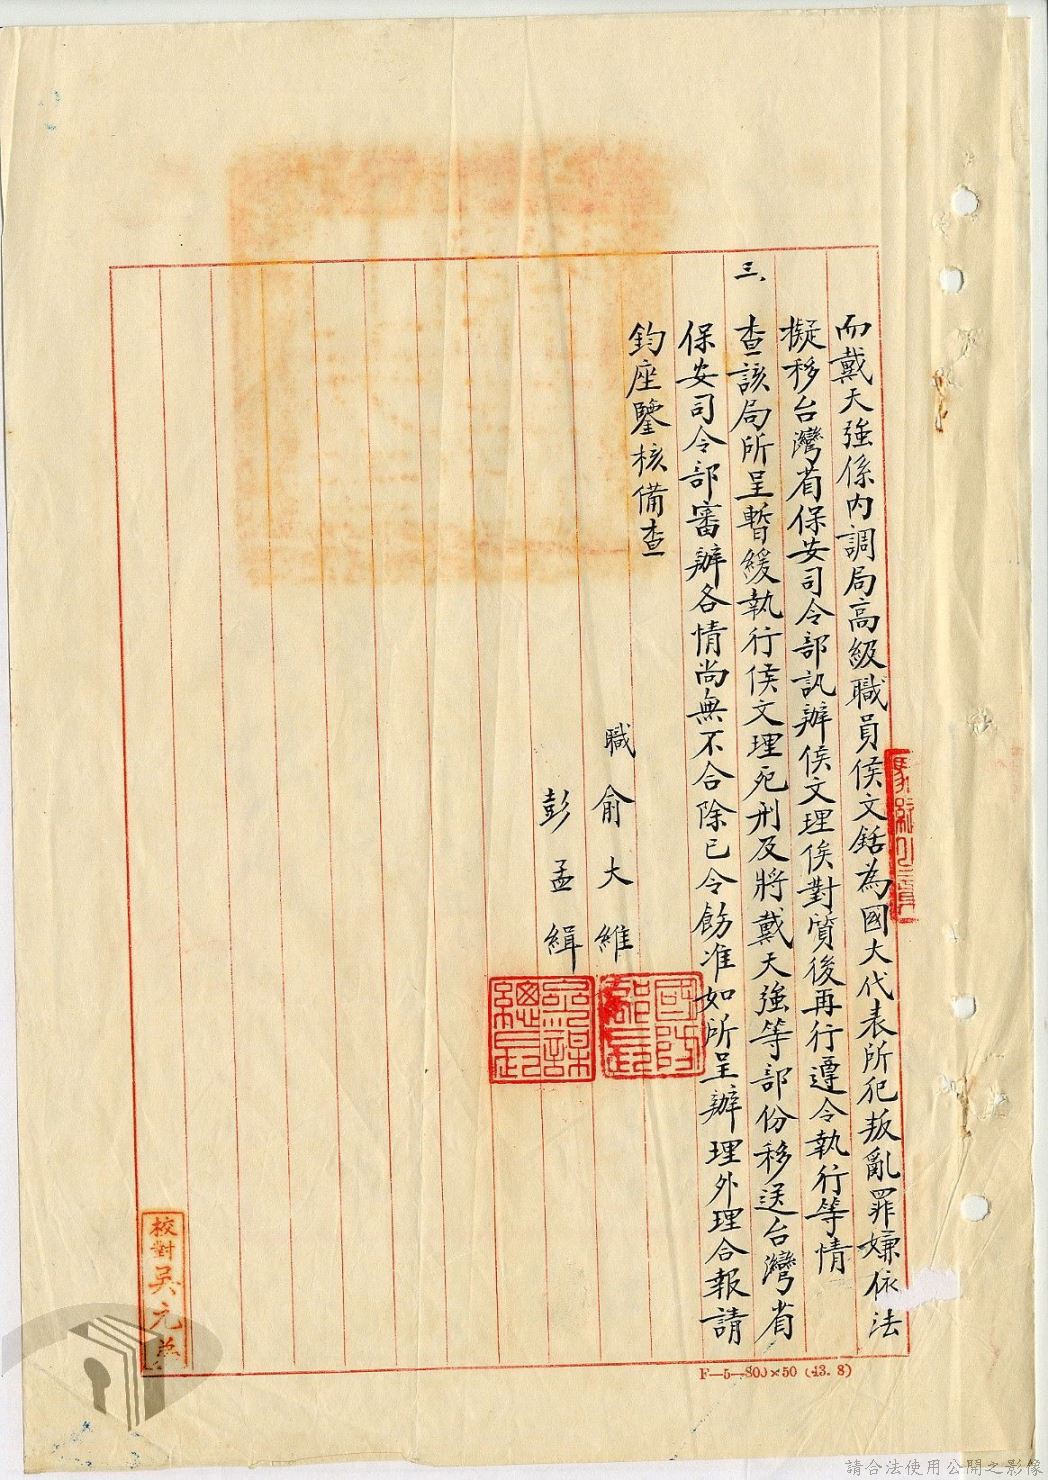 而戴天強係內調局高級職員侯文銛為國大代表所犯叛亂罪嫌依法
擬移台灣省保安司令部訊辦侯文理俟對質後再行遵令執行等情
三、查該局所呈暫緩執行侯文理死刑及將戴天強等部份移送台灣省
保安司令部審辦各情尚無不合除已令飭准如所呈辦理外理合報請
鈞座鑒核備查
職俞大維
彭孟緝
國防部長印
參謀總長印
校對吳元
F—5—800×50 (43. 8)
請合法使用公開之影像